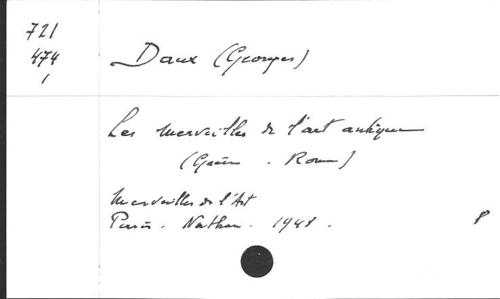 721
474
1
Daux (Georges)
Les merveilles de l'art antique
(Grèce . Rome)
Merveilles de l'Art
Paris . Nathan . 1948 .
P